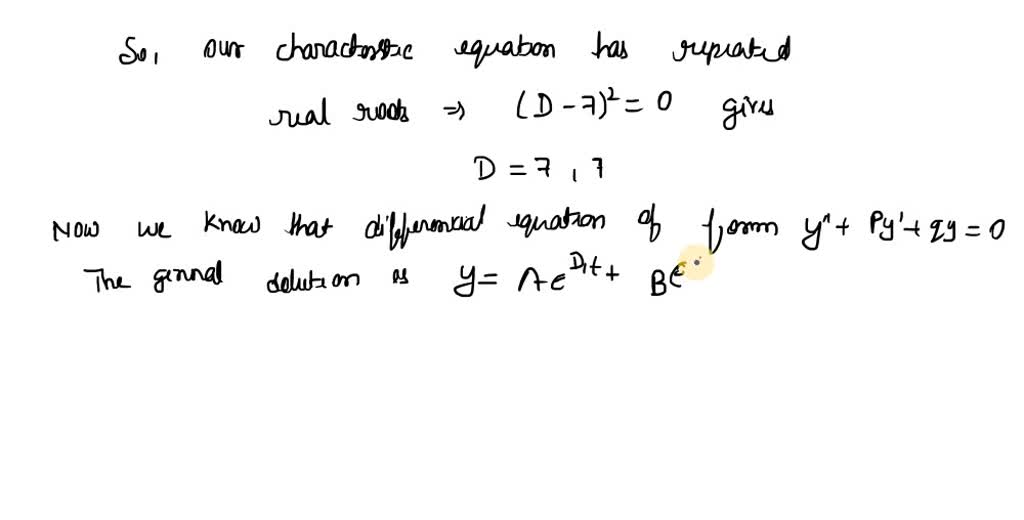 So, our characteristic equation has repeated
real roots ⇒ (D-7)² = 0 gives
D = 7, 7
Now we know that differencial equation of form y" + Py' + qy = 0
The genral solution is y = Ae^{D₁t} + Be